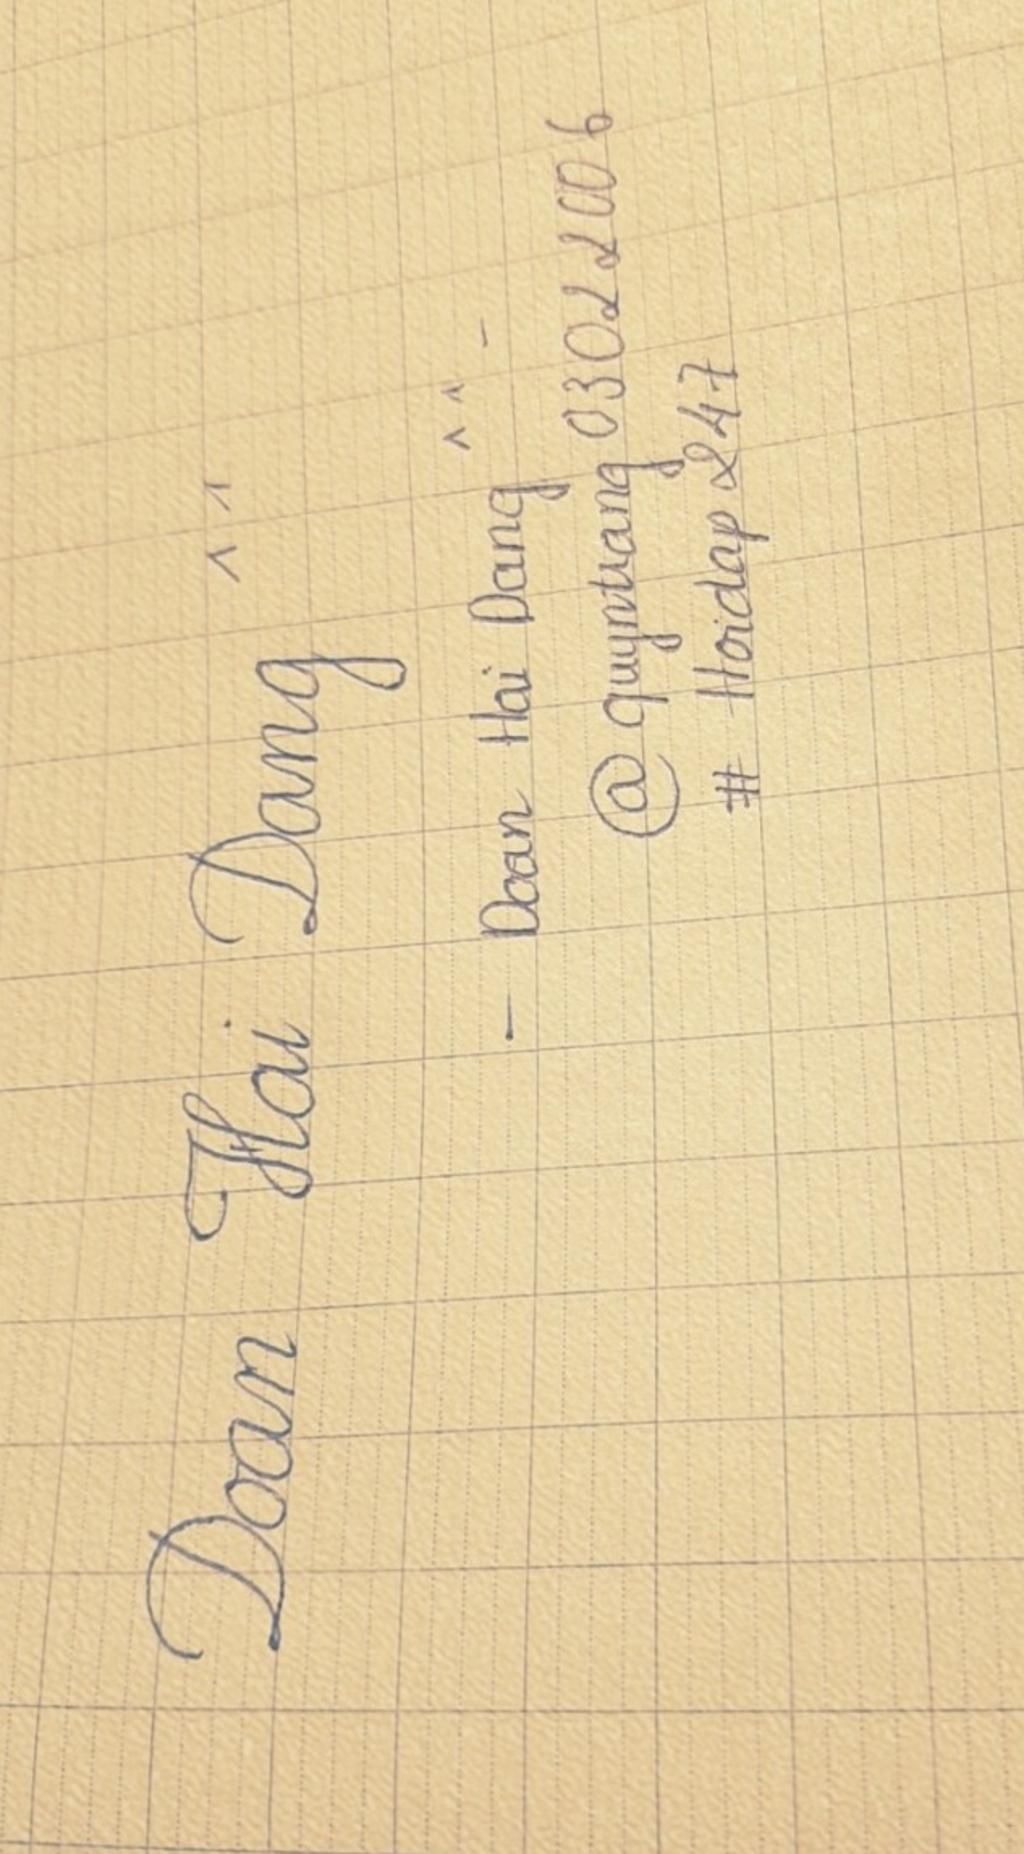 Doan Hai Dang ^^
- Doan Hai Dang ^^ -
@quyntrang03022006
# Hoidap247